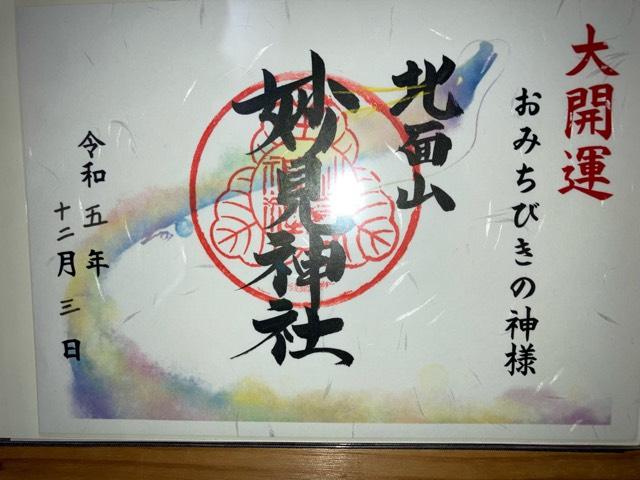 大開運
おみちびきの神様
北面山
妙見神社
令和五年
十二月三日